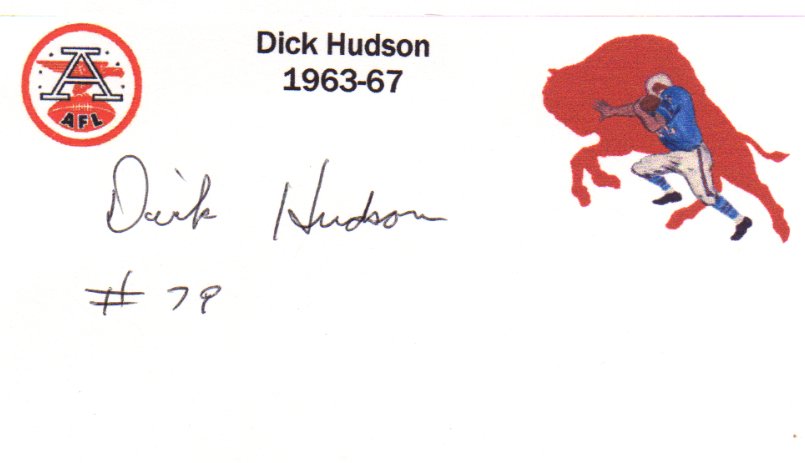 A
AFL
Dick Hudson
1963-67
Dick Hudson
# 78